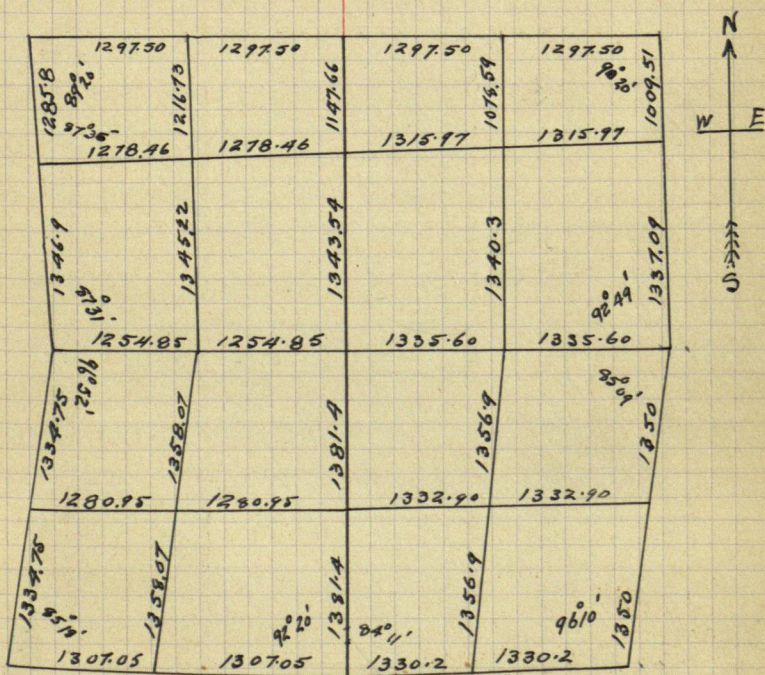 N
W E
S
1297.50 1297.50 1297.50 1297.50
1285.8 89° 20' 1216.73 1147.66 1078.59 90° 20' 1009.51
87° 35'
1278.46 1278.46 1315.97 1315.97
1346.9 1345.22 1343.54 1340.3 1337.09
87° 31' 92° 49'
1254.85 1254.85 1335.60 1335.60
96° 52' 85° 09'
1334.75 1358.07 1381.4 1356.9 1350
1280.95 1280.95 1332.90 1332.90
1334.75 1358.07 1381.4 1356.9 1350
85° 19' 92° 20' 84° 11' 96° 10'
1307.05 1307.05 1330.2 1330.2